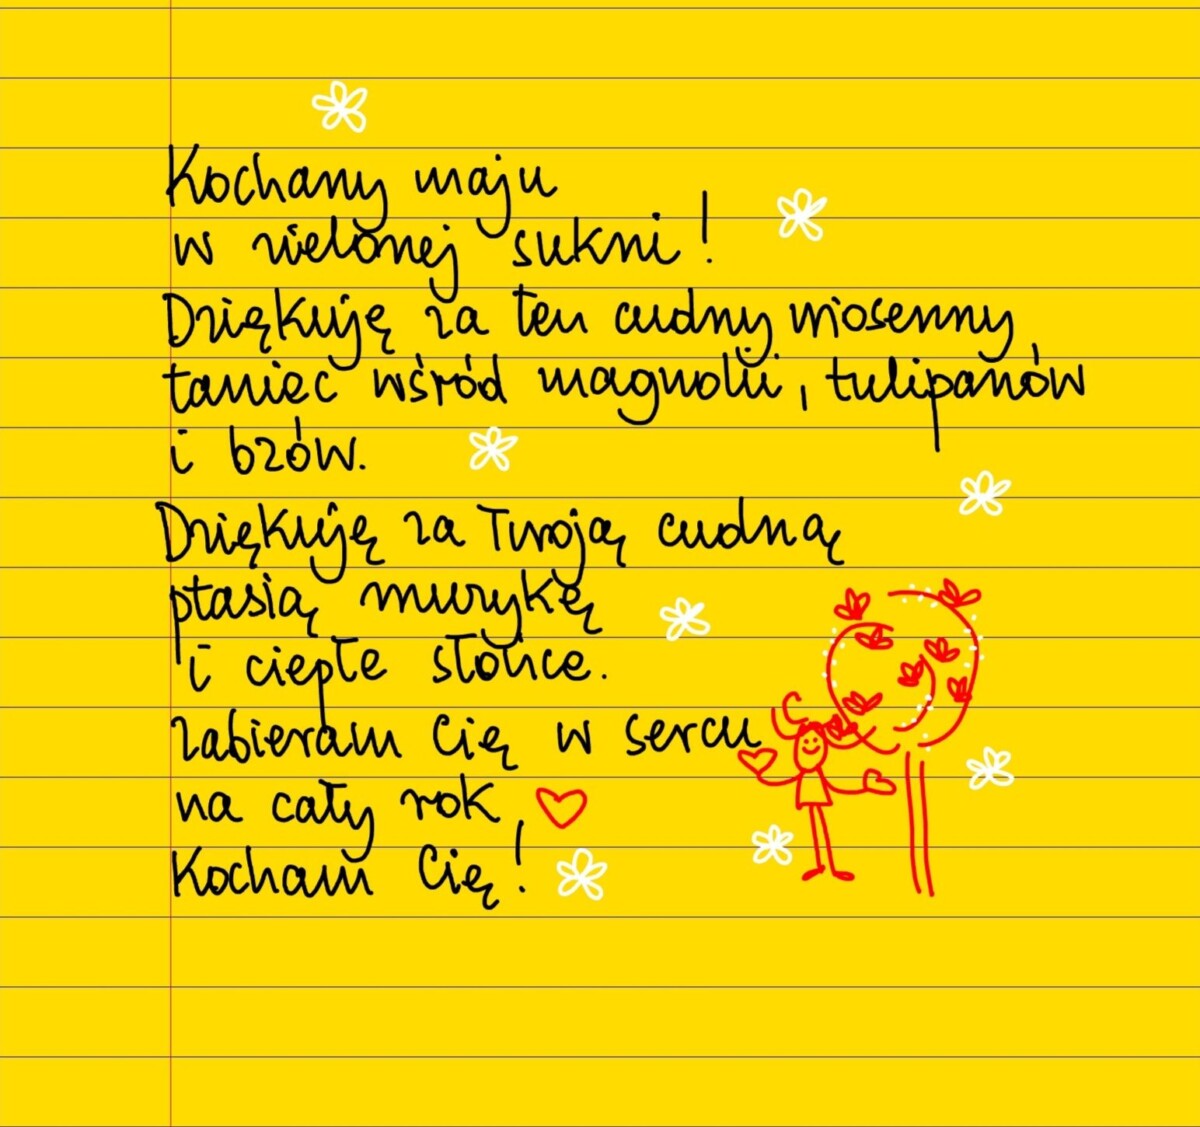 Kochany maju
w zielonej sukni!
Dziękuję za ten cudny wiosenny
taniec wśród magnolii, tulipanów
i bzów.
Dziękuję za Twoją cudną
ptasią muzykę
i ciepłe słońce.
Zabieram Cię w sercu
na cały rok,
Kocham Cię!